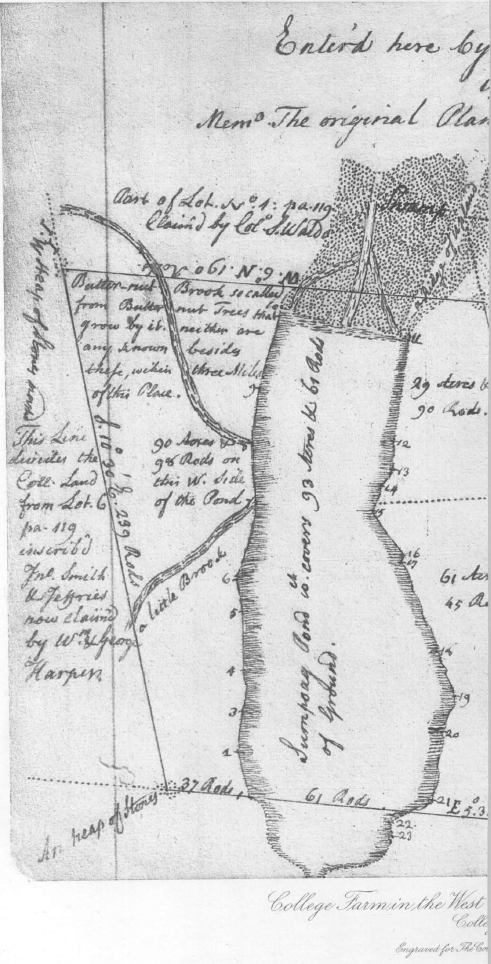 Enter'd here by
Memo. The original Plan
Part of Lot. No. 1: pa. 119
Claim'd by Colo. S. Waldo
Swamp
W. 9. N. 190
Butter-nut Brook so called
from Butter nut Trees that
grow by it. neither are
any known besides
these, within three Miles
of this Place.
Heap of Stones
29 Acres &
90 Rods.
11
12
13
14
15
16
17
18
19
20
21
22
23
This Line
divides the
Coll. Land
from Lot. 6
pa. 119
inscrib'd
Jno. Smith
& Jeffries
now claim'd
by Wm. & George
Harper
239 Rods
90 Acres &
98 Rods on
this W. Side
of the Pond
a little Brook
Sumpoag Pond wch. covers 93 Acres & 61 Rods
of Ground.
61 Acr
45 Ro
9
8
7
6
5
4
3
2
1
37 Rods,
61 Rods
E 5. 3
An heap of Stones
College Farm in the West
Colle
Engraved for The Co